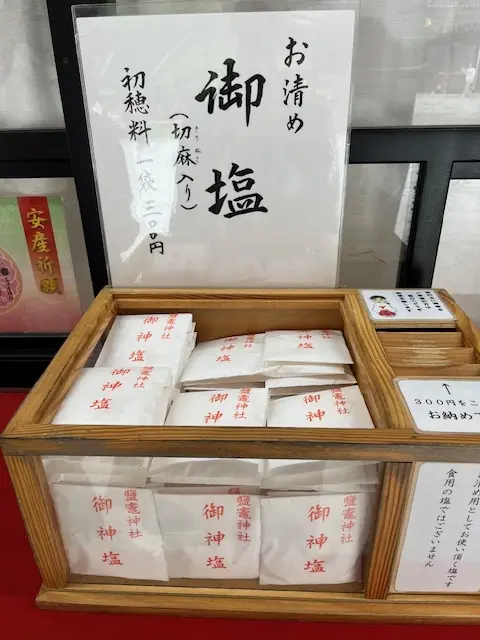 お清め
御塩
(切麻入り)
きり ぬさ
初穂料 一袋 三〇〇円
安産祈
鹽竈神社
御神塩
鹽竈神社
御神塩
神社
御神塩
鹽竈神社
御神塩
鹽竈神社
御神塩
鹽竈神社
御神塩
鹽竈神社
御神塩
鹽竈神社
御神塩
↑
300円をこ
お納めて
清め用としてお使い頂く塩です
食用の塩ではございません